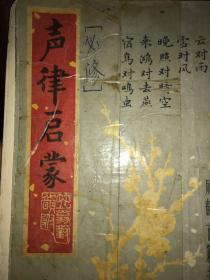 云对雨
雪对风
晚照对晴空
来鸿对去燕
宿鸟对鸣虫
［必修］
声律启蒙